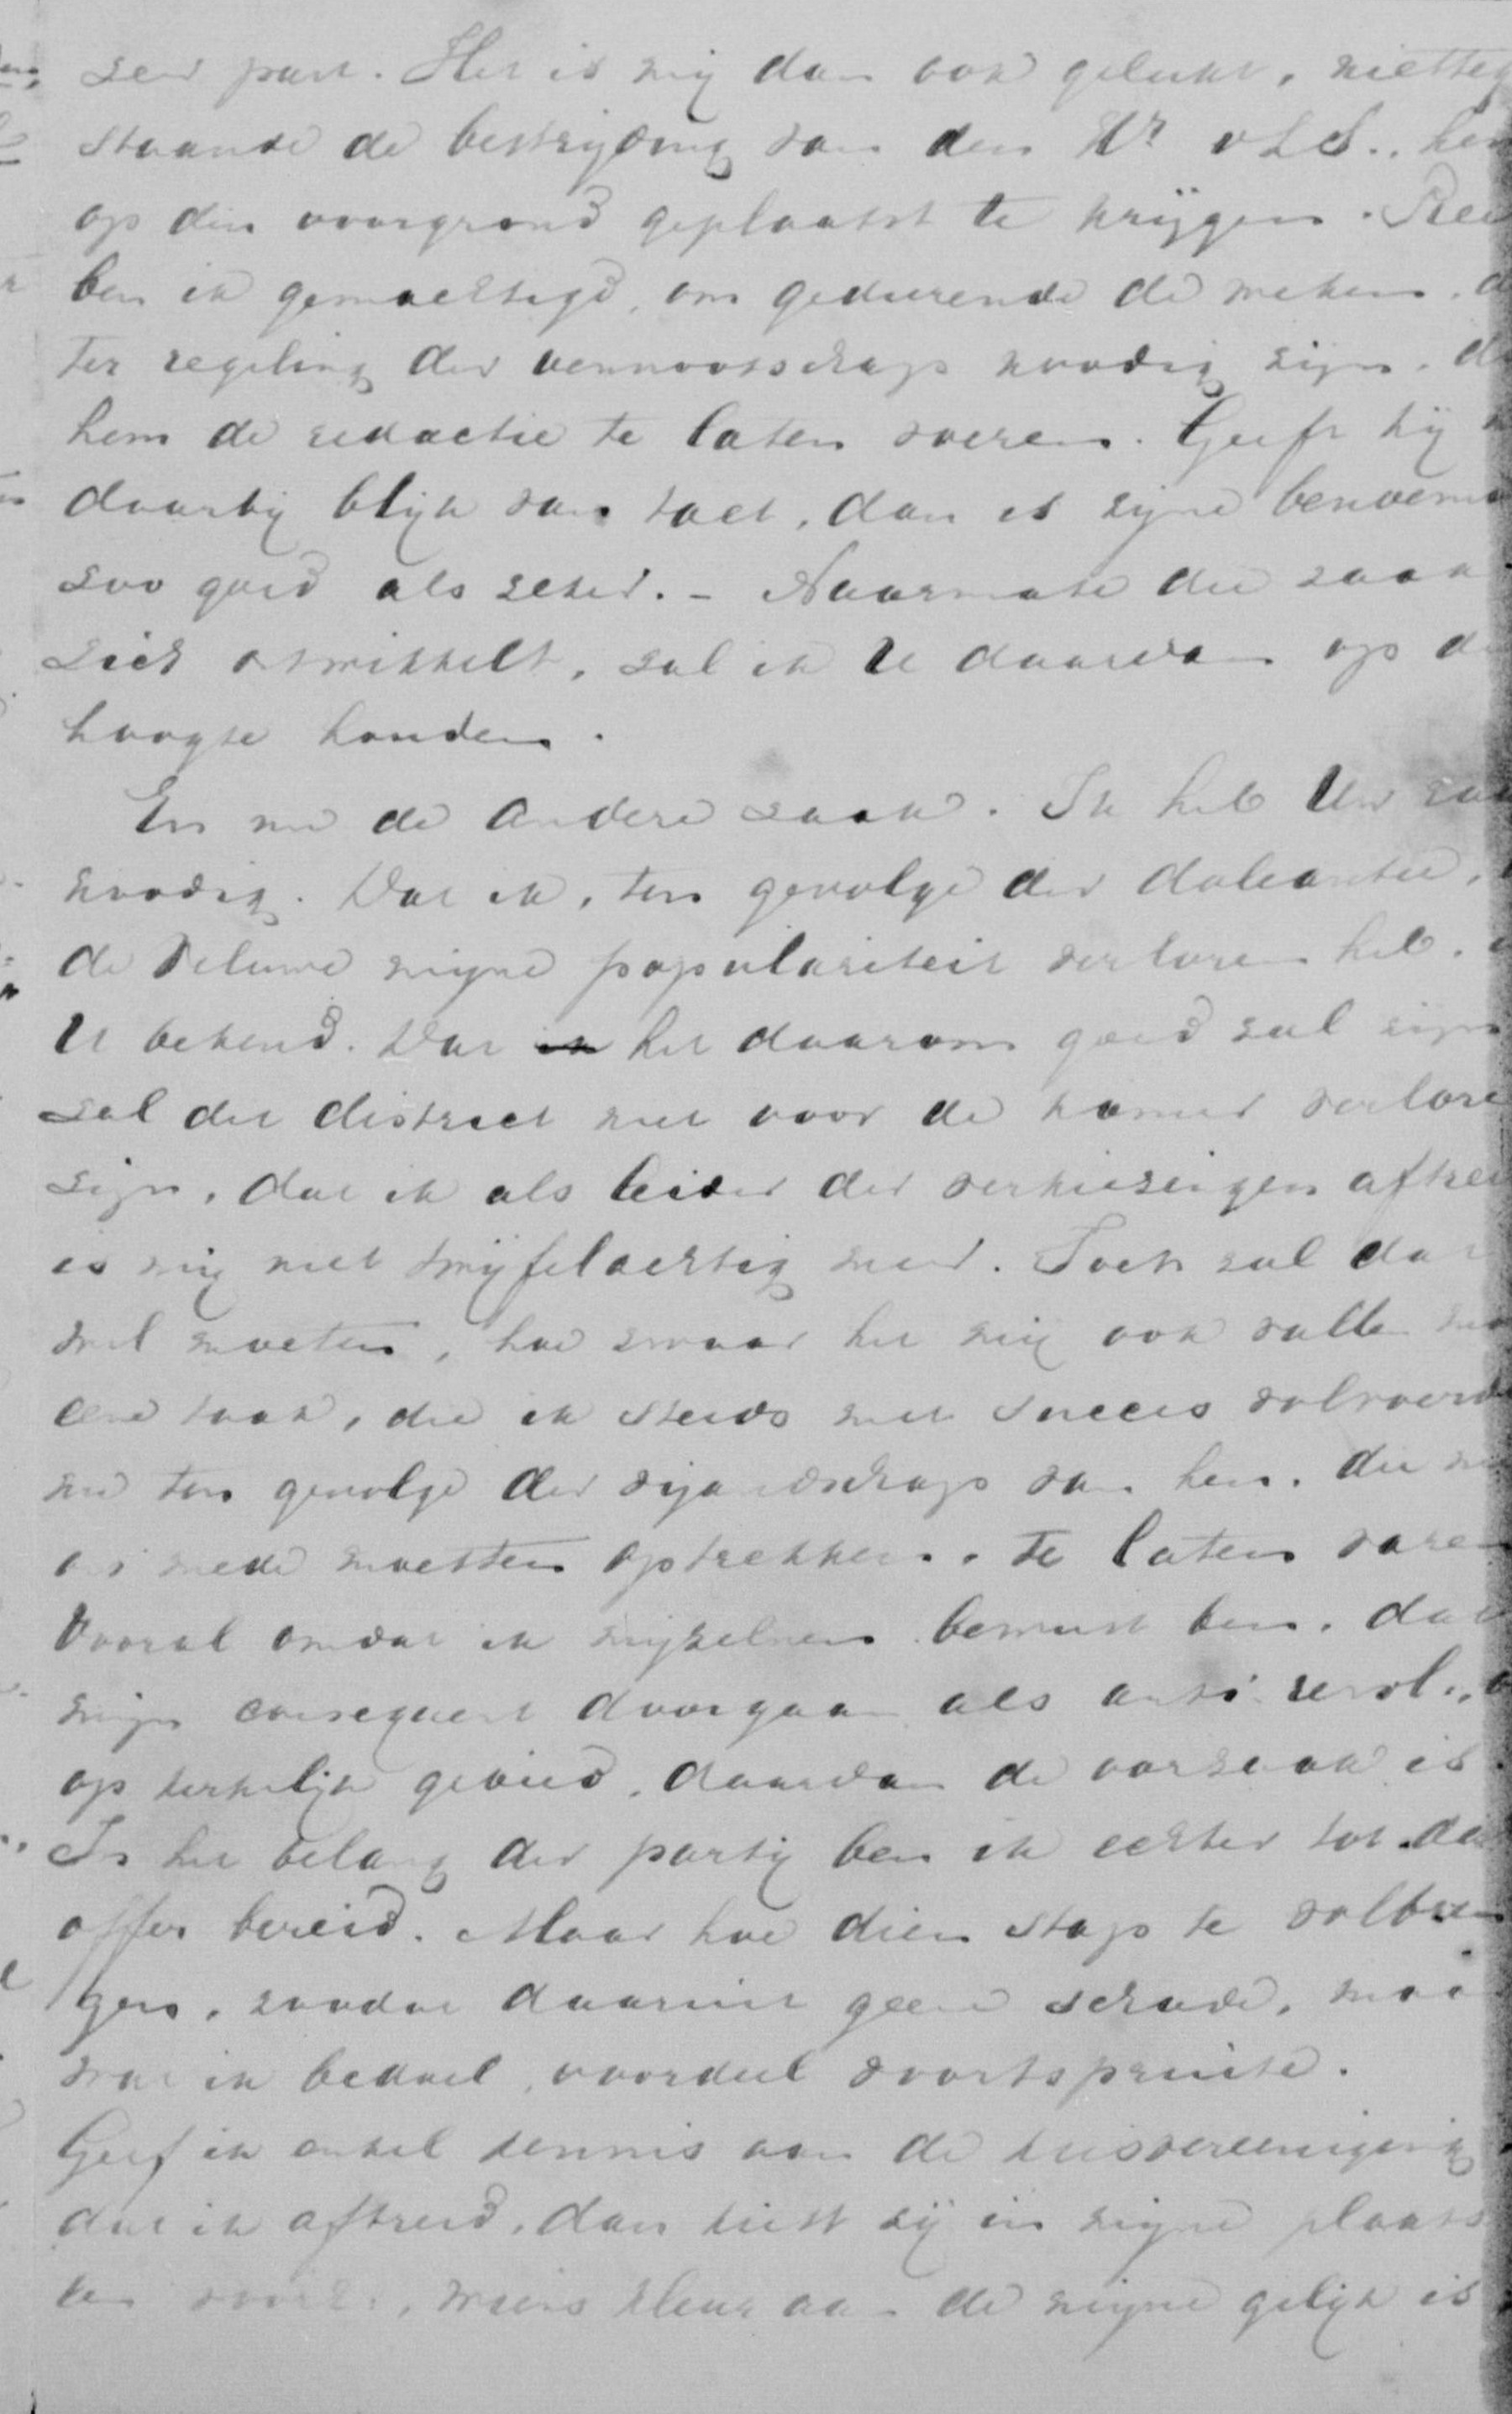 zeer past. Het is mij dan ook gelukt, nietteg
staande de bestrijding van den Hr v L S., hem
op den voorgrond geplaatst te krijgen.
ben ik gemachtigd, om gedurende de weken, d
ter regeling der vennootschap noodig zijn,
hem de redactie te laten voeren. Geeft hij
daarbij blijk van tact, dan is zijne benoem
zoo goed als zeker. – Naarmate die zaak
zich ontwikkelt, zal ik U daarvan op de
hoogte houden.
En nu de andere zaak. Ik heb Uw raa
noodig. Dat ik, ten gevolge der doleantie,
de Veluwe mijne populariteit verloren heb,
U bekend. Dat het daarom goed zal zijn
zal dit district niet voor de kamer verlore
zijn, dat ik als leider der verkiezingen aftre
is mij niet twijfelachtig meer. Toch zal dat
wel moeten, hoe zwaar het mij ook valle
eene taak, die ik steeds met succes volvoerd
nu ten gevolge der vijandschap van hen, die
ons mede moesten optrekken, te laten varen
Vooral omdat ik mijzelven bewust ben, dat
mijn consequent doorgaan als anti-revol.,
op kerkelijk gebied, daarvan de oorzaak is.
In het belang der partij ben ik echter tot dat
offer bereid. Maar hoe dien stap te volbren
gen, zoodat daaruit geene schade, maar
wat ik bedoel, voordeel voortspruite.
Geef ik enkel kennis aan de kiesvereeniging
dat ik aftreed, dan kiest zij in mijne plaats
wiens kleur aan de mijne gelijk is